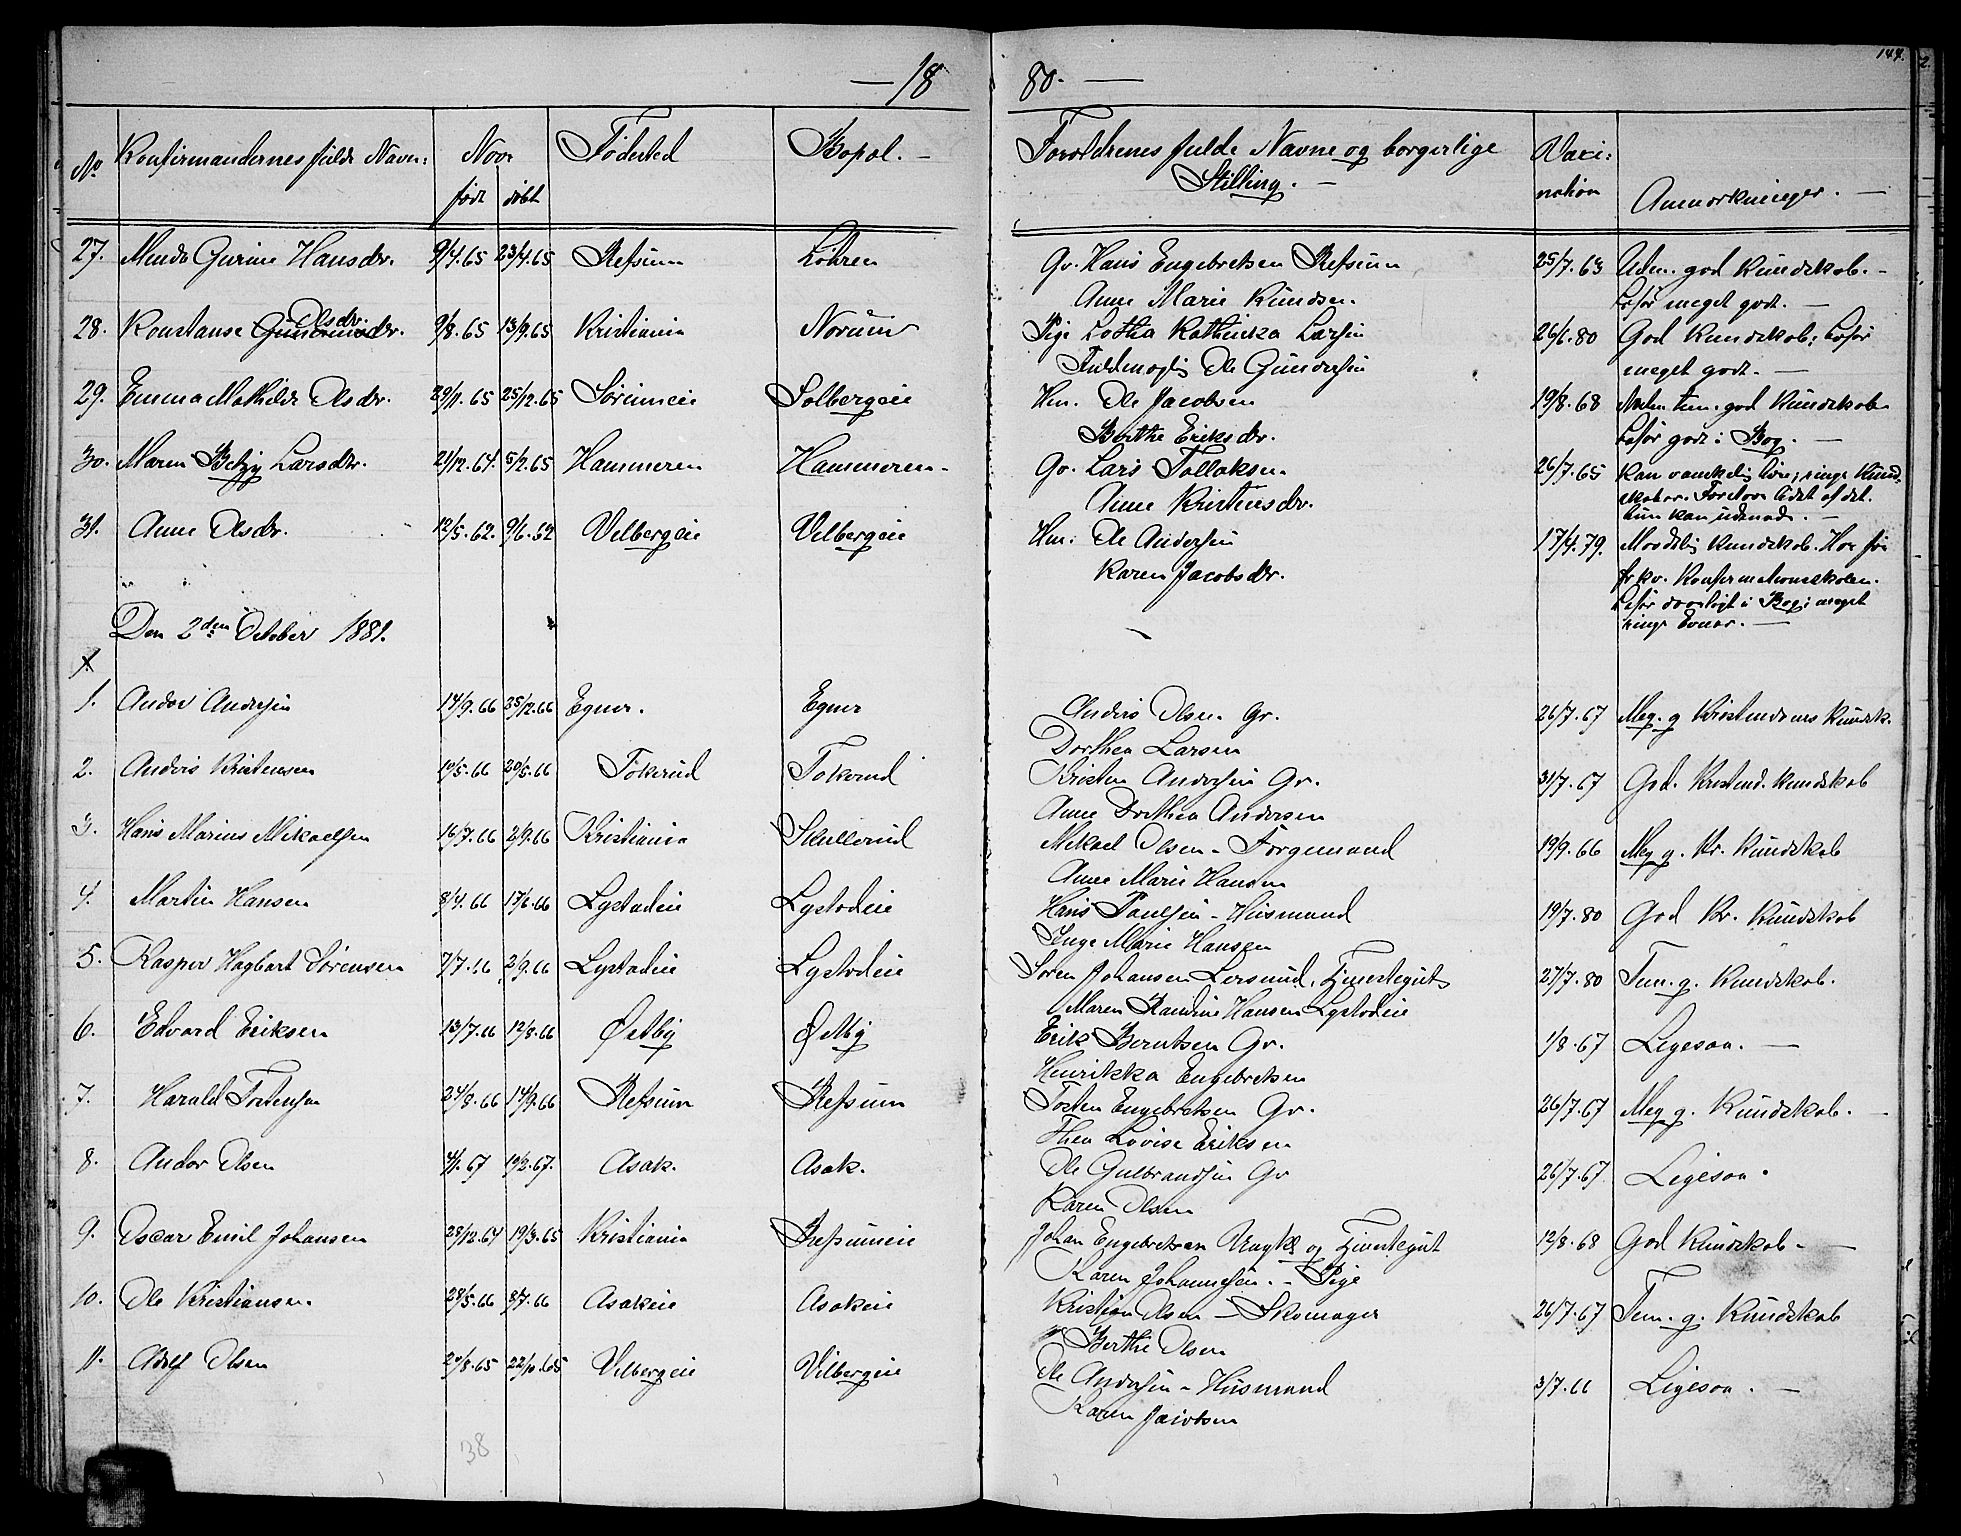 144.
— 18 80. —
No Konfirmandernes fulde Navn: Naar født døbt Fødested Bopæl. — Forældrenes fulde Navne og borgerlige Stilling. — Vaxi: nation Anmærkninger. —
27. Gurine Hansdr. 9/4.65 23/4.65 Refsum Løkren Gr. Hans Engebretsen Refsum 25/7.63 Udm. god Kundskab. —
Anne Marie Knudsen. læser meget godt. —
Olsdr.
28. Konstanse Gundersdr. 9/8.65 13/9.65 Kristiania Norum Pige Lotha Kathinka Larsen 26/6.80 God Kundskab; læser
Fuldmægtig Ole Gundersen meget godt. —
29. Emma Mathilde Olsdr. 29/11.65 25/12.65 Sørumeie Solbergeie Hm. Ole Jacobsen 19/8.68 tem. god Kundskab
Berthe Eriksdr. læser godt i Bog. —
30. Maren Betzy Larsdtr. 21/12.64. 5/2.65 Hammeren Hammeren. Gr. Lars Tollaksen 26/7.65 Kan vanskelig lære; ringe Kund-
Anne Kristensdr. skaber. Forstaar lidet af det.
hun kan udenad. —
31. Anne Olsdr. 12/5.62. 9/6.62 Vilbergeie Vilbergeie Hm. Ole Andersen 17/4.79. Maadelig Kundskab. Har før
Karen Jacobsdr. Konfirmationsskolen.
læser daarligt i Bog; meget
ringe Evner. —
Den 2den October 1881.
1. Andor Andersen 14/9.66 25/12.66 Egner. Egner Anders Olsen Gr. 26/7.67 Meg. g Kristendoms Kundsk.
Dorthea Larsen
2. Anders Kristensen 10/5.66 20/5.66 Tokerud Tokerud Kristen Andersen Gr. 31/7.67 God. Kristend. Kundskab
Anne Dorthea Andersen
3. Hans Marius Mikaelsen 16/7.66 2/9.66 Kristiania Skullerud Mikael Olsen - Forgemand 19/9.66 Meg g. Kr. Kundskab
Anne Marie Hansen
4. Martin Hansen 8/4.66 17/6.66 Lystadeie Lystadeie Hans Paulsen - Husmand 19/7.80 God Kr. Kundskab
Inge Marie Hansen
5. Kasper Hagbart Sørensen 7/7.66 2/9.66 Lystadeie Lystadeie Søren Johansen Lersund, Tjenestegut 27/7.80 Tem. g. Kundskab.
Maren Randine Hansen Lystadeie
6. Edvard Eriksen 13/7.66 12/8.66 Østby Østby Erik Berntsen Gr. 1/8.67 Ligesaa. —
Henrikka Engebretsen
7. Harald Tostensen 24/8.66 14/9.66 Refsum Refsum Tosten Engebretsen Gr. 26/7.67 Meg g. Kundskab. —
Thea Lovise Eriksen
8. Andor Olsen 4/1.67 10/2.67. Asak. Asak. Ole Gulbrandsen Gr 26/7.67 Ligesaa.
Karen Olsen
9. Oscar Emil Johansen 28/12.64 19/3.65 Kristiania Refsumeie Johan Engebretsen Ungk. og Tjenestegut 12/8.68 God Kundskab. —
Karen Johannesen. - Pige
10. Ole Kristiansen. 28/5.66 8/7.66 Asakeie Asakeie Kristian Olsen - Skomager 26/7.67 Tem. g. Kundskab
Berthe Olsen
11. Adolf Olsen 20/8.65 22/10.65 Vilbergeie Vilbergeie Ole Andersen - Husmand 3/7.66 Ligesaa. —
Karen Jacobsen
38